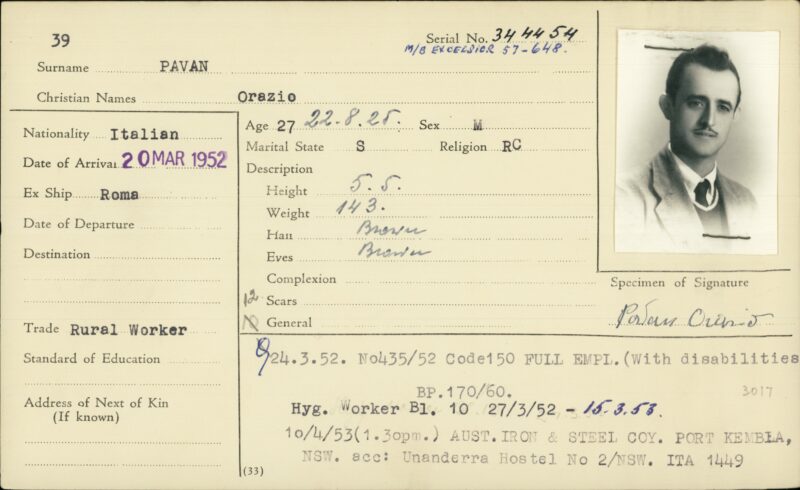 39
Serial No. 344454
M/B EXCELSIOR 57-648.
Surname PAVAN
Christian Names Orazio
Nationality Italian
Date of Arrival 20 MAR 1952
Ex Ship Roma
Date of Departure
Destination
Trade Rural Worker
Standard of Education
Address of Next of Kin
(If known)
Age 27 22.8.25. Sex M
Marital State S Religion RC
Description
Height 5.5.
Weight 143.
Hair Brown
Eyes Brown
Complexion
12 Scars
General
Specimen of Signature
24.3.52. No435/52 Code150 FULL EMPL.(With disabilities
BP.170/60.
3017
Hyg. Worker Bl. 10 27/3/52 - 15.3.53.
10/4/53(1.30pm.) AUST.IRON & STEEL COY. PORT KEMBLA,
NSW. acc: Unanderra Hostel No 2/NSW. ITA 1449
(33)